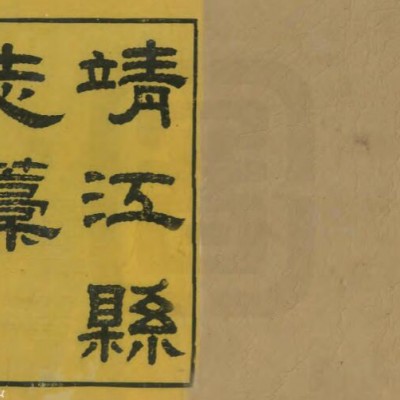 靖江縣
志藁